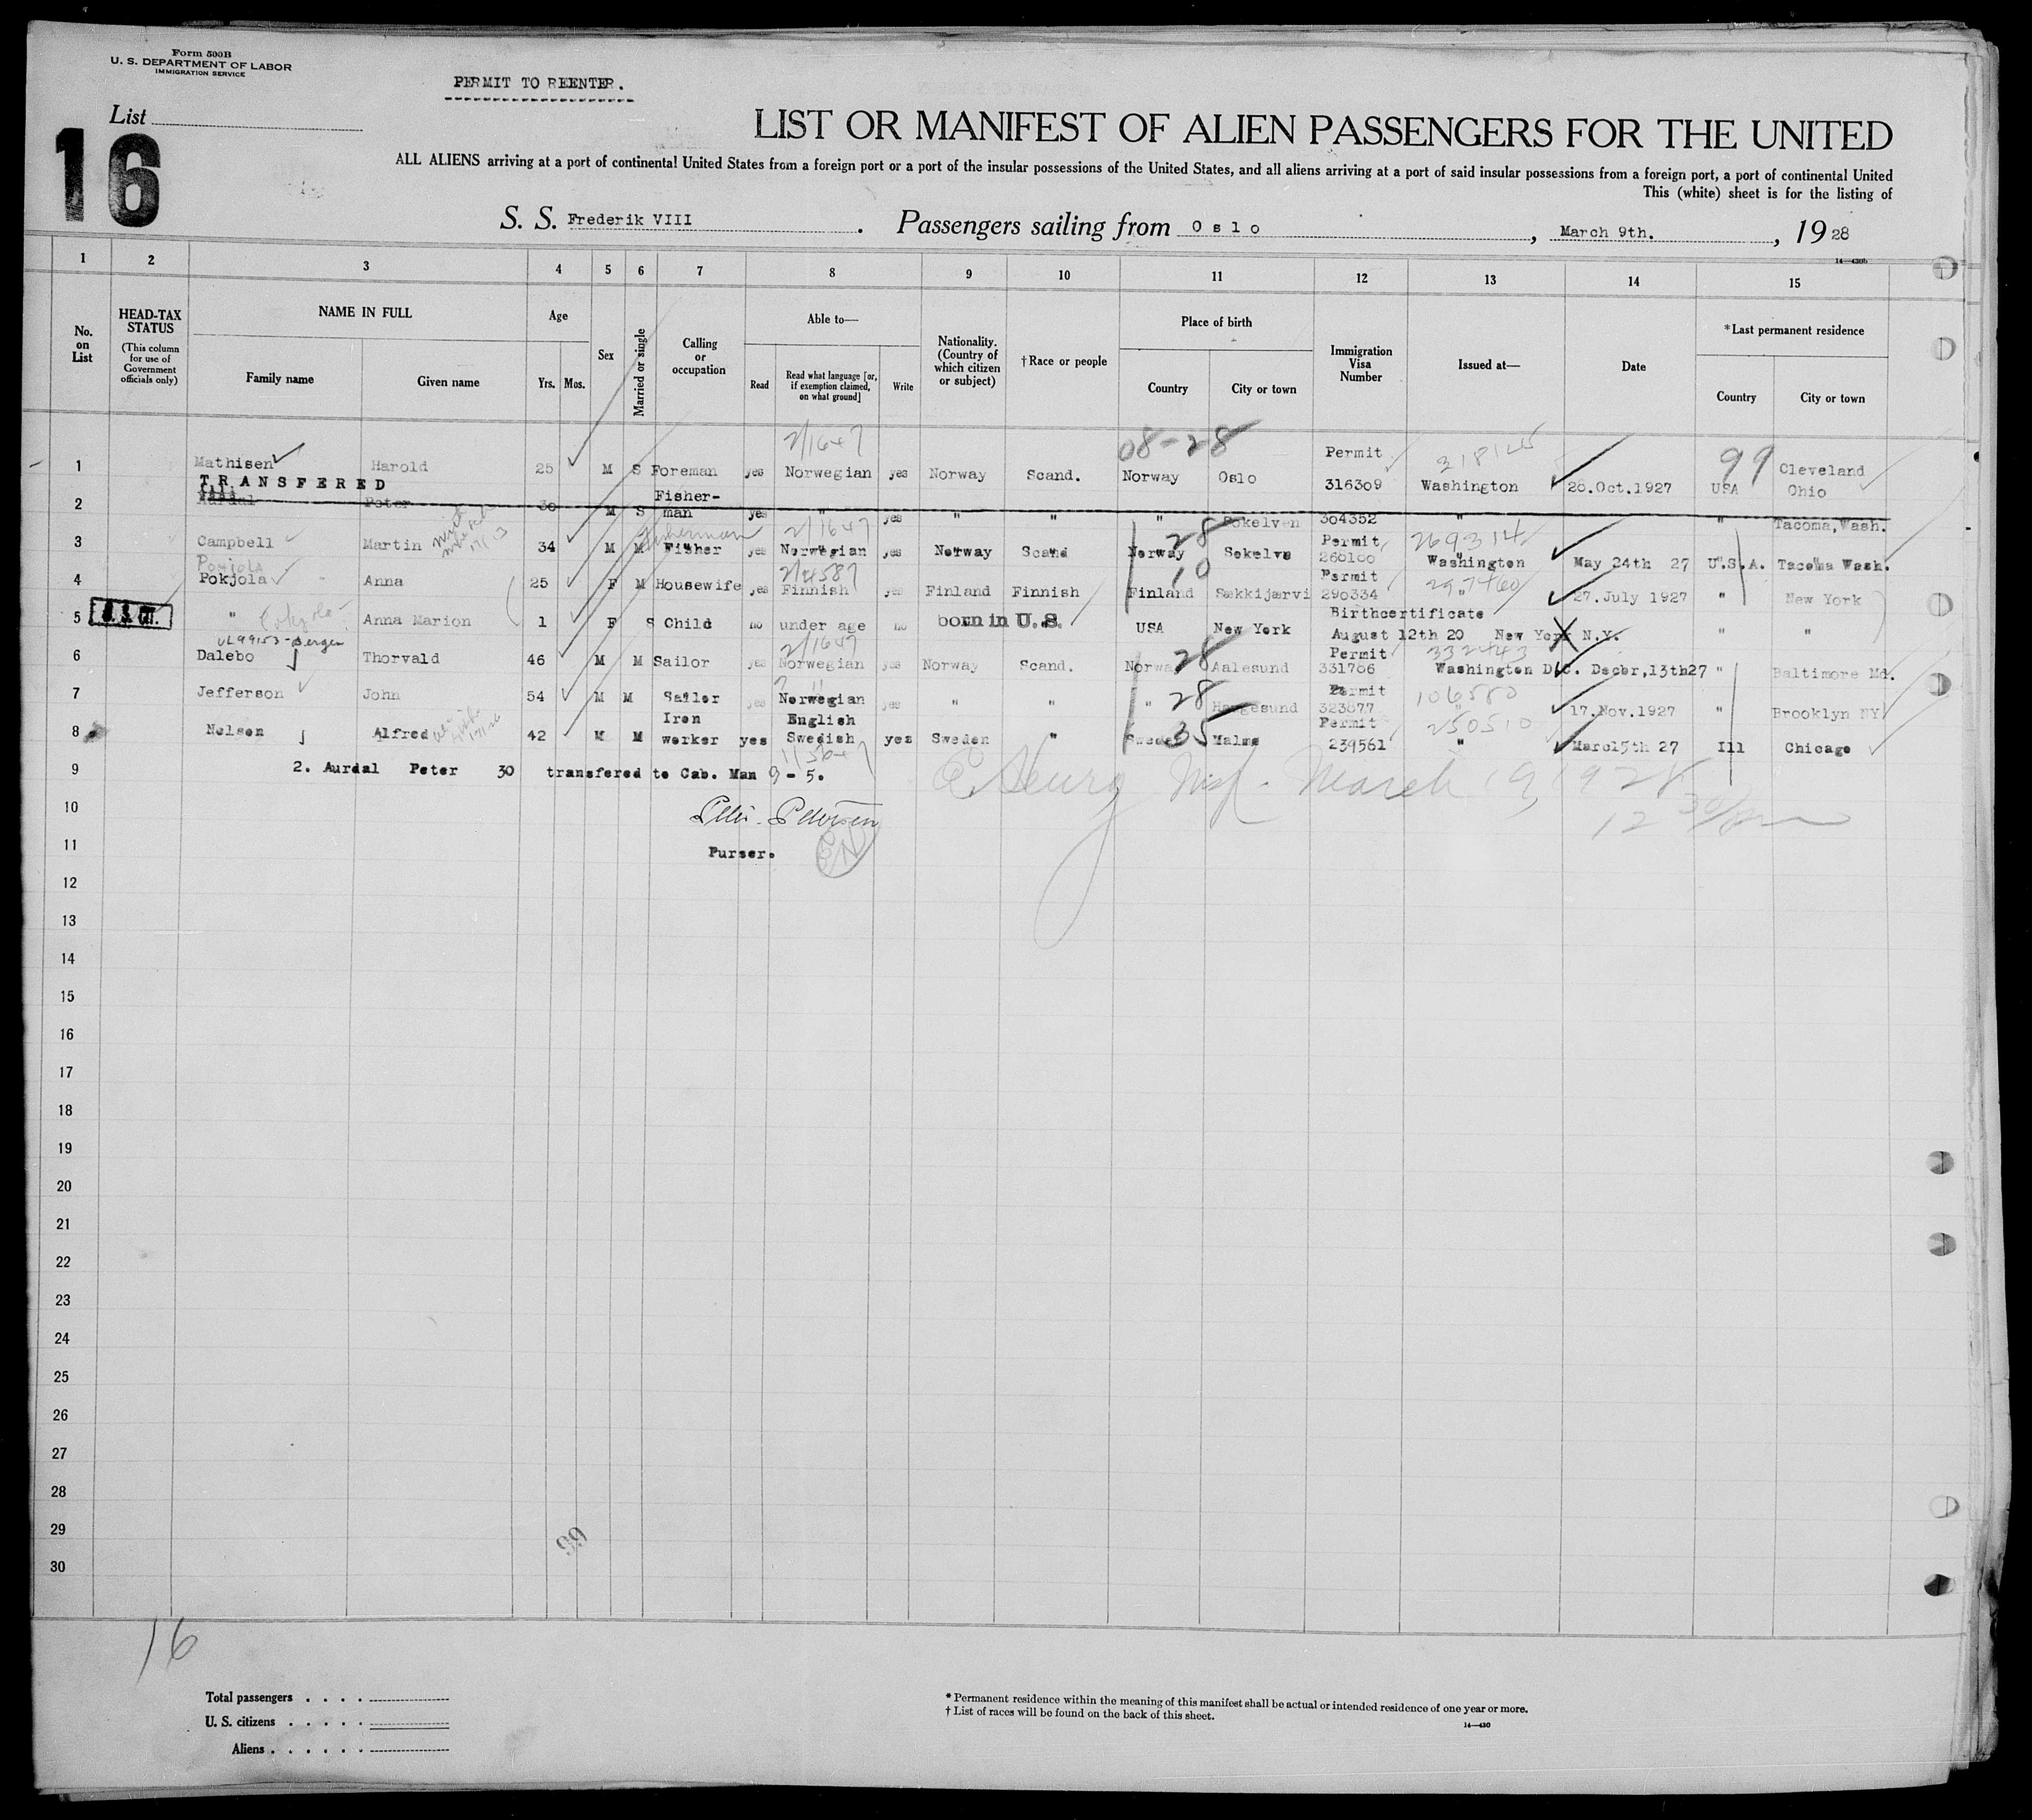 Form 500B
U. S. DEPARTMENT OF LABOR
IMMIGRATION SERVICE
PERMIT TO REENTER.
List
16
LIST OR MANIFEST OF ALIEN PASSENGERS FOR THE UNITED
ALL ALIENS arriving at a port of continental United States from a foreign port or a port of the insular possessions of the United States, and all aliens arriving at a port of said insular possessions from a foreign port, a port of continental United
This (white) sheet is for the listing of
S. S. Frederik VIII. Passengers sailing from Oslo, March 9th., 1928
14—430b
1 2 3 4 5 6 7 8 9 10 11 12 13 14 15
No. on List
HEAD-TAX STATUS (This column for use of Government officials only)
NAME IN FULL
Family name Given name
Age
Yrs. Mos.
Sex
Married or single
Calling or occupation
Able to—
Read Read what language [or, if exemption claimed, on what ground] Write
Nationality. (Country of which citizen or subject)
†Race or people
Place of birth
Country City or town
Immigration Visa Number
Issued at—
Date
*Last permanent residence
Country City or town
2/1647 08-28 Permit 318125 99
1 Mathisen Harold 25 M S Foreman yes Norwegian yes Norway Scand. Norway Oslo 316309 Washington 26.Oct.1927 USA Cleveland Ohio
TRANSFERED
2 Aurdal Peter 30 M S Fisher-man yes " yes " " " Sokelven 304352 " " Tacoma,Wash.
fisherman 2/1647 28 Permit 269314
3 Campbell Martin 34 M M Fisher yes Norwegian yes Norway Scand Norway Sokelve 260100 Washington May 24th 27 U.S.A. Tacoma Wash.
Pojjola 2/4587 10 Permit 297460
4 Pokjola Anna 25 F M Housewife yes Finnish yes Finland Finnish Finland Sækkijærvi 290334 " 27.July 1927 " New York
5 " Anna Marion 1 F S Child no under age no born in U.S. USA New York Birthcertificate August 12th 20 New York N.Y. " "
UL99153-Bergen 2/1647 28 Permit 332443
6 Dalebo Thorvald 46 M M Sailor yes Norwegian yes Norway Scand. Norway Aalesund 331706 Washington D.C. Decbr,13th27 " Baltimore Md.
28 Permit 106580
7 Jefferson John 54 M M Sailor yes Norwegian yes " " " Haugesund 323877 " 17.Nov.1927 " Brooklyn NY
35 Permit 250510
8 Nelson Alfred 42 M M Iron worker yes English Swedish yes Sweden " Sweden Malmø 239561 " Marc15th 27 Ill Chicago
9 2. Aurdal Peter 30 transfered to Cab. Man 9 - 5.
March 19, 1928
12 30/pm
10 Petersen
11 Purser.
12
13
14
15
16
17
18
19
20
21
22
23
24
25
26
27
28
29
30
99
16
Total passengers
U. S. citizens
Aliens
* Permanent residence within the meaning of this manifest shall be actual or intended residence of one year or more.
† List of races will be found on the back of this sheet.
14—430